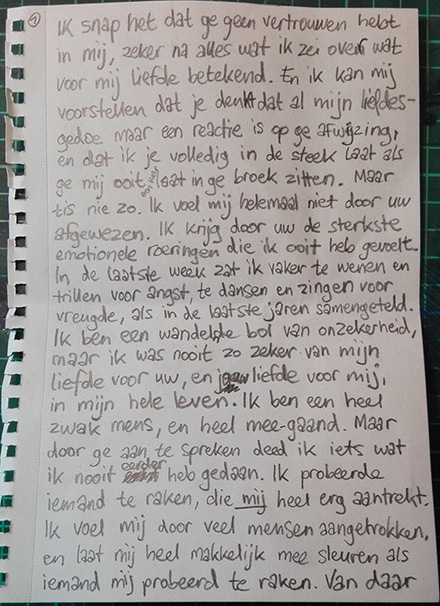 ①
IK snap het dat ge geen vertrouwen hebt
in mij, zeker na alles wat ik zei over wat
voor mij liefde betekend. En ik kan mij
voorstellen dat je denkt dat al mijn liefdes-
gedoe maar een reactie is op ge afwijzing,
en dat ik je volledig in de steek laat als
ge mij ooit laat in ge broek zitten. Maar
tis nie zo. Ik voel mij helemaal niet door uw
afgewezen. Ik krijg door uw de sterkste
emotionele roeringen die ik ooit heb gevoelt.
In de laatste week zat ik vaker te wenen en
trillen voor angst, te dansen en zingen voor
vreugde, als in de laatste jaren samengeteld.
Ik ben een wandelde bol van onzekerheid,
maar ik was nooit zo zeker van mijn
liefde voor uw, en liefde voor mij,
in mijn hele leven. Ik ben een heel
zwak mens, en heel mee-gaand. Maar
door ge aan te spreken deed ik iets wat
ik nooit eerder heb gedaan. Ik probeerde
iemand te raken, die mij heel erg aantrekt.
Ik voel mij door veel mensen aangetrokken,
en laat mij heel makkelijk mee sleuren als
iemand mij probeerd te raken. Van daar